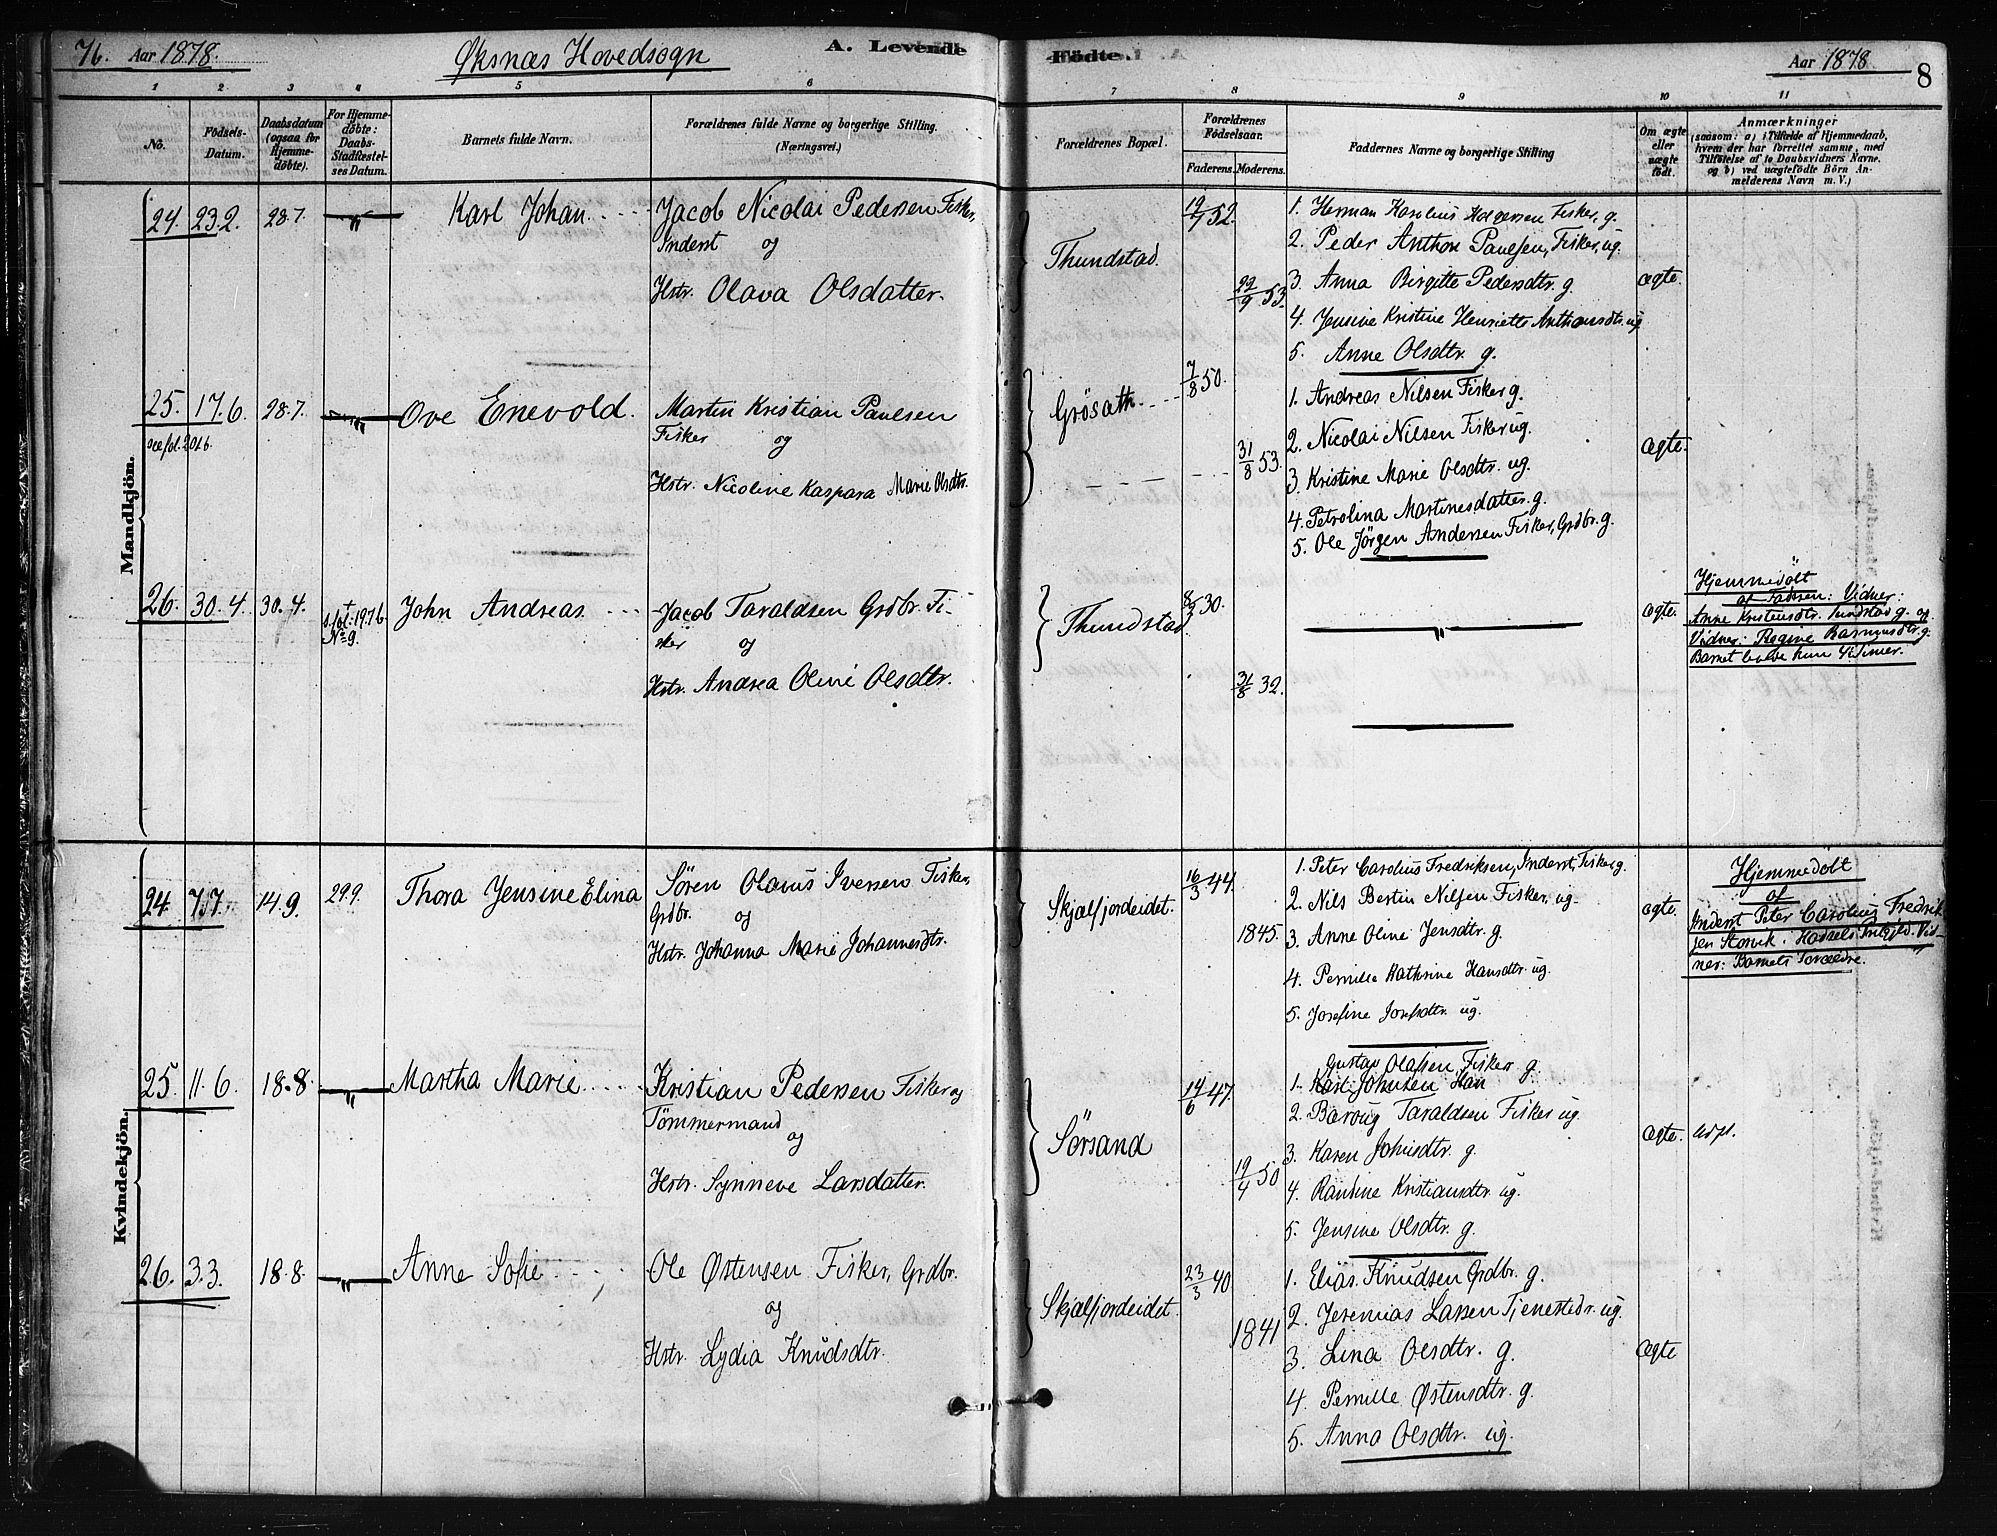 76. Aar 1878. Øksnæs Hovedsogn A. Levende
Fødte. Aar 1878 8
1 2 3 4 5 6
7 8 9 10 11
No. Fødsels-Datum. Daabsdatum (ogsaa for Hjemme-døbte). For Hjemme-døbte: Daabs-Stadfæstel-ses Datum. Barnets fulde Navn. Forældrenes fulde Navne og borgerlige Stilling. (Næringsvei.)
Forældrenes Bopæl. Forældrenes Fødselsaar. Faderens. Moderens. Faddernes Navne og borgerlige Stilling Om ægte eller uægte født.
Anmærkninger
(saasom: a) i Tilfælde af Hjemmedaab,
hvem der har forrettet samme, med
Tilføielse af to Daabsvidners Navne,
og b) ved uægtefødte Børn An-
melderens Navn m. V.)
Mandkjön.
24. 23.2. 28.7. Karl Johan Jacob Nicolai Pedersen Fisker,
Inderst og
Hstr. Olava Olsdatter.
Thundstad.
19/7 52.
22/9 53.
1. Herman Karolius Halvorsen Fisker, g.
2. Peder Anthon Paulsen, Fisker, ug.
3. Anna Birgitte Pedersdtr. g.
4. Jensine Kristine Henriette Anthonsdtr. ug
5. Anne Olsdtr. g.
ægte.
25. 17.6. 28.7. Ove Enevold. Martin Kristian Paulsen
Fisker og
Hstr. Nicoline Kaspara Marie Olsdtr.
Grösath.
7/8 50.
31/8 53.
1. Andreas Nilsen Fisker g.
2. Nicolai Nilsen Fisker ug.
3. Kristine Marie Olsdtr. ug.
4. Petrolina Martinesdatter. g.
5. Ole Jörgen Andersen Fisker, Grdbr. g.
ægte.
26. 30.4. 30.4. John Andreas Jacob Taraldsen Grdbr. Fi-
sker og
Hstr. Andrea Oline Olsdtr.
Thundstad.
30.
31/8 32.
ægte.
Hjemmedöbt
af Fadren: Vidner:
Anne Kristensdtr. Tundstad g. og
Vidner: Regine Rasmusdtr. g.
Barnet levede kun 4 Timer.
Kvindekjön.
24. 7.7. 14.9. 29.9. Thora Jensine Elina Sören Olaus Iversen Fisker,
Grdbr. og
Hstr. Johanna Marie Johannesdtr.
Skjælfjordeidet.
16/3 44.
1845.
1. Peter Carolius Fredriksen, Inderst, Fisker, g.
2. Nils Bertin Nilsen Fisker, ug.
3. Anne Oline Jensdtr. g.
4. Pernille Kathrine Hansdtr. ug.
5. Josefine Josefsdtr. ug.
ægte.
Hjemmedöbt
af
Inderst Peter Carolius Fredrik-
sen Storvik. Hadsels Vid-
ner: Barnets Forældre.
25. 11.6. 18.8. Martha Marie Kristian Pedersen Fisker og
Tömmermand
og
Hstr. Synneve Larsdatter.
Sörsand
14/6 47.
19/4 50
Gustav Olafsen Fisker g.
1. Karl Johnsen Han
2. Taraldsen Fisker ug.
3. Karen Johnsdtr. g.
4. Kristiansdtr. ug.
5. Jensine Olsdtr. g.
ægte.
26. 3.3. 18.8. Anne Sofie Ole Østensen Fisker, Grdbr.
og
Hstr. Lydia Knudsdtr.
Skjælfjordeidet.
23/3 40
1841
1. Elias Knudsen Grdbr. g.
2. Jeremias Larsen Tjenestedr. ug.
3. Lina Olsdtr. g.
4. Pernille Østensdtr. g.
5. Anna Olsdtr. ug.
ægte